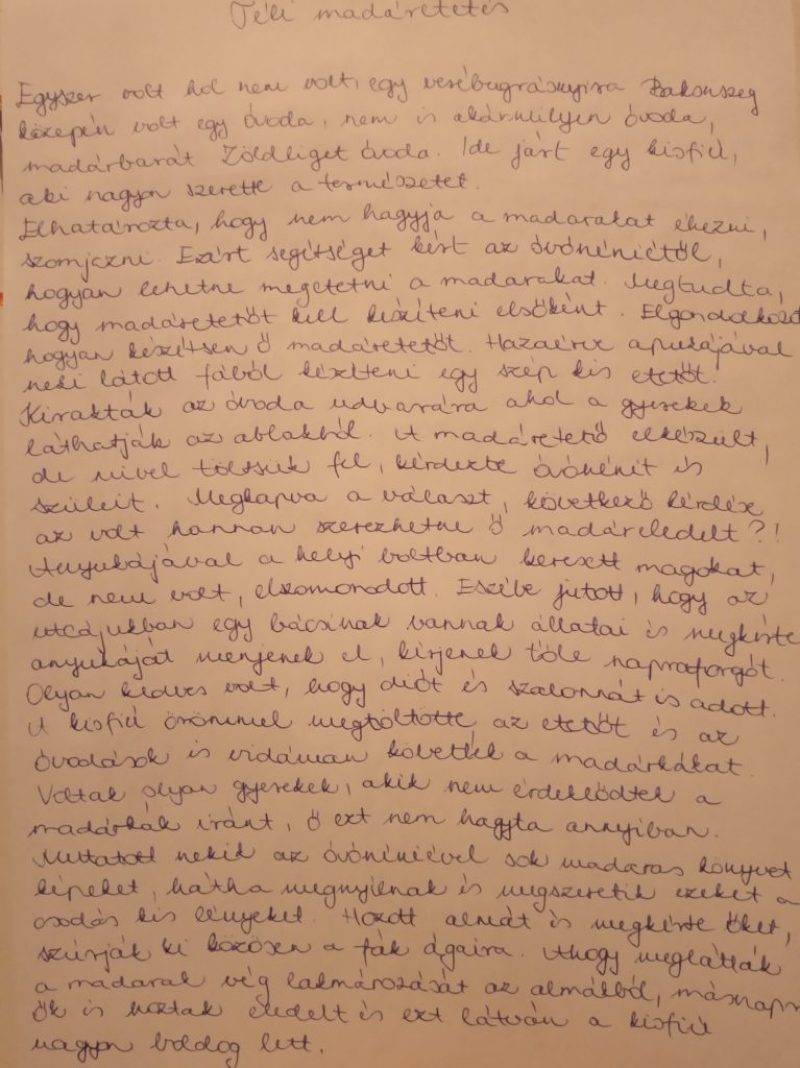 Téli madáretetés
Egyszer volt hol nem volt, egy verébugrásnyira Bakonszeg
közepén volt egy óvoda, nem is akármilyen óvoda,
madárbarát Zöldliget óvoda. Ide járt egy kisfiú,
aki nagyon szerette a természetet.
Elhatározta, hogy nem hagyja a madarakat éhezni,
szomjazni. Ezért segítséget kért az óvónéniétől,
hogyan lehetne megetetni a madarakat. Megtudta,
hogy madáretetőt kell készíteni elsőként. Elgondolkozott
hogyan készítsen ő madáretetőt. Hazaérve apukájával
neki látott fából készíteni egy szép kis etetőt.
Kirakták az óvoda udvarára ahol a gyerekek
láthatják az ablakból. A madáretető elkészült,
de mivel töltsük fel, kérdezte óvónénit és
szüleit. Megkapva a választ, következő kérdés
az volt honnan szerezhetne ő madáreledelt?!
Anyukájával a helyi boltban keresett magokat,
de nem volt, elszomorodott. Eszébe jutott, hogy az
utcájukban egy bácsinak vannak állatai és megkérte
anyukáját menjenek el, kérjenek tőle napraforgót.
Olyan kedves volt, hogy diót és szalonnát is adott.
A kisfiú örömmel megtöltötte az etetőt és az
óvodások is vidáman követték a madárkákat.
Voltak olyan gyerekek, akik nem érdeklődtek a
madárkák iránt, ő ezt nem hagyta annyiban.
Mutatott nekik az óvónéniével sok madaras könyvet
képeket, hátha megnyílnak és megszeretik ezeket a
csodás kis lényeket. Hozott almát és megkérte őket,
szúrják ki közösen a fák ágaira. Ahogy meglátták
a madarak vég lakmározását az almákból, másnapra
ők is hoztak eledelt és ezt látván a kisfiú
nagyon boldog lett.